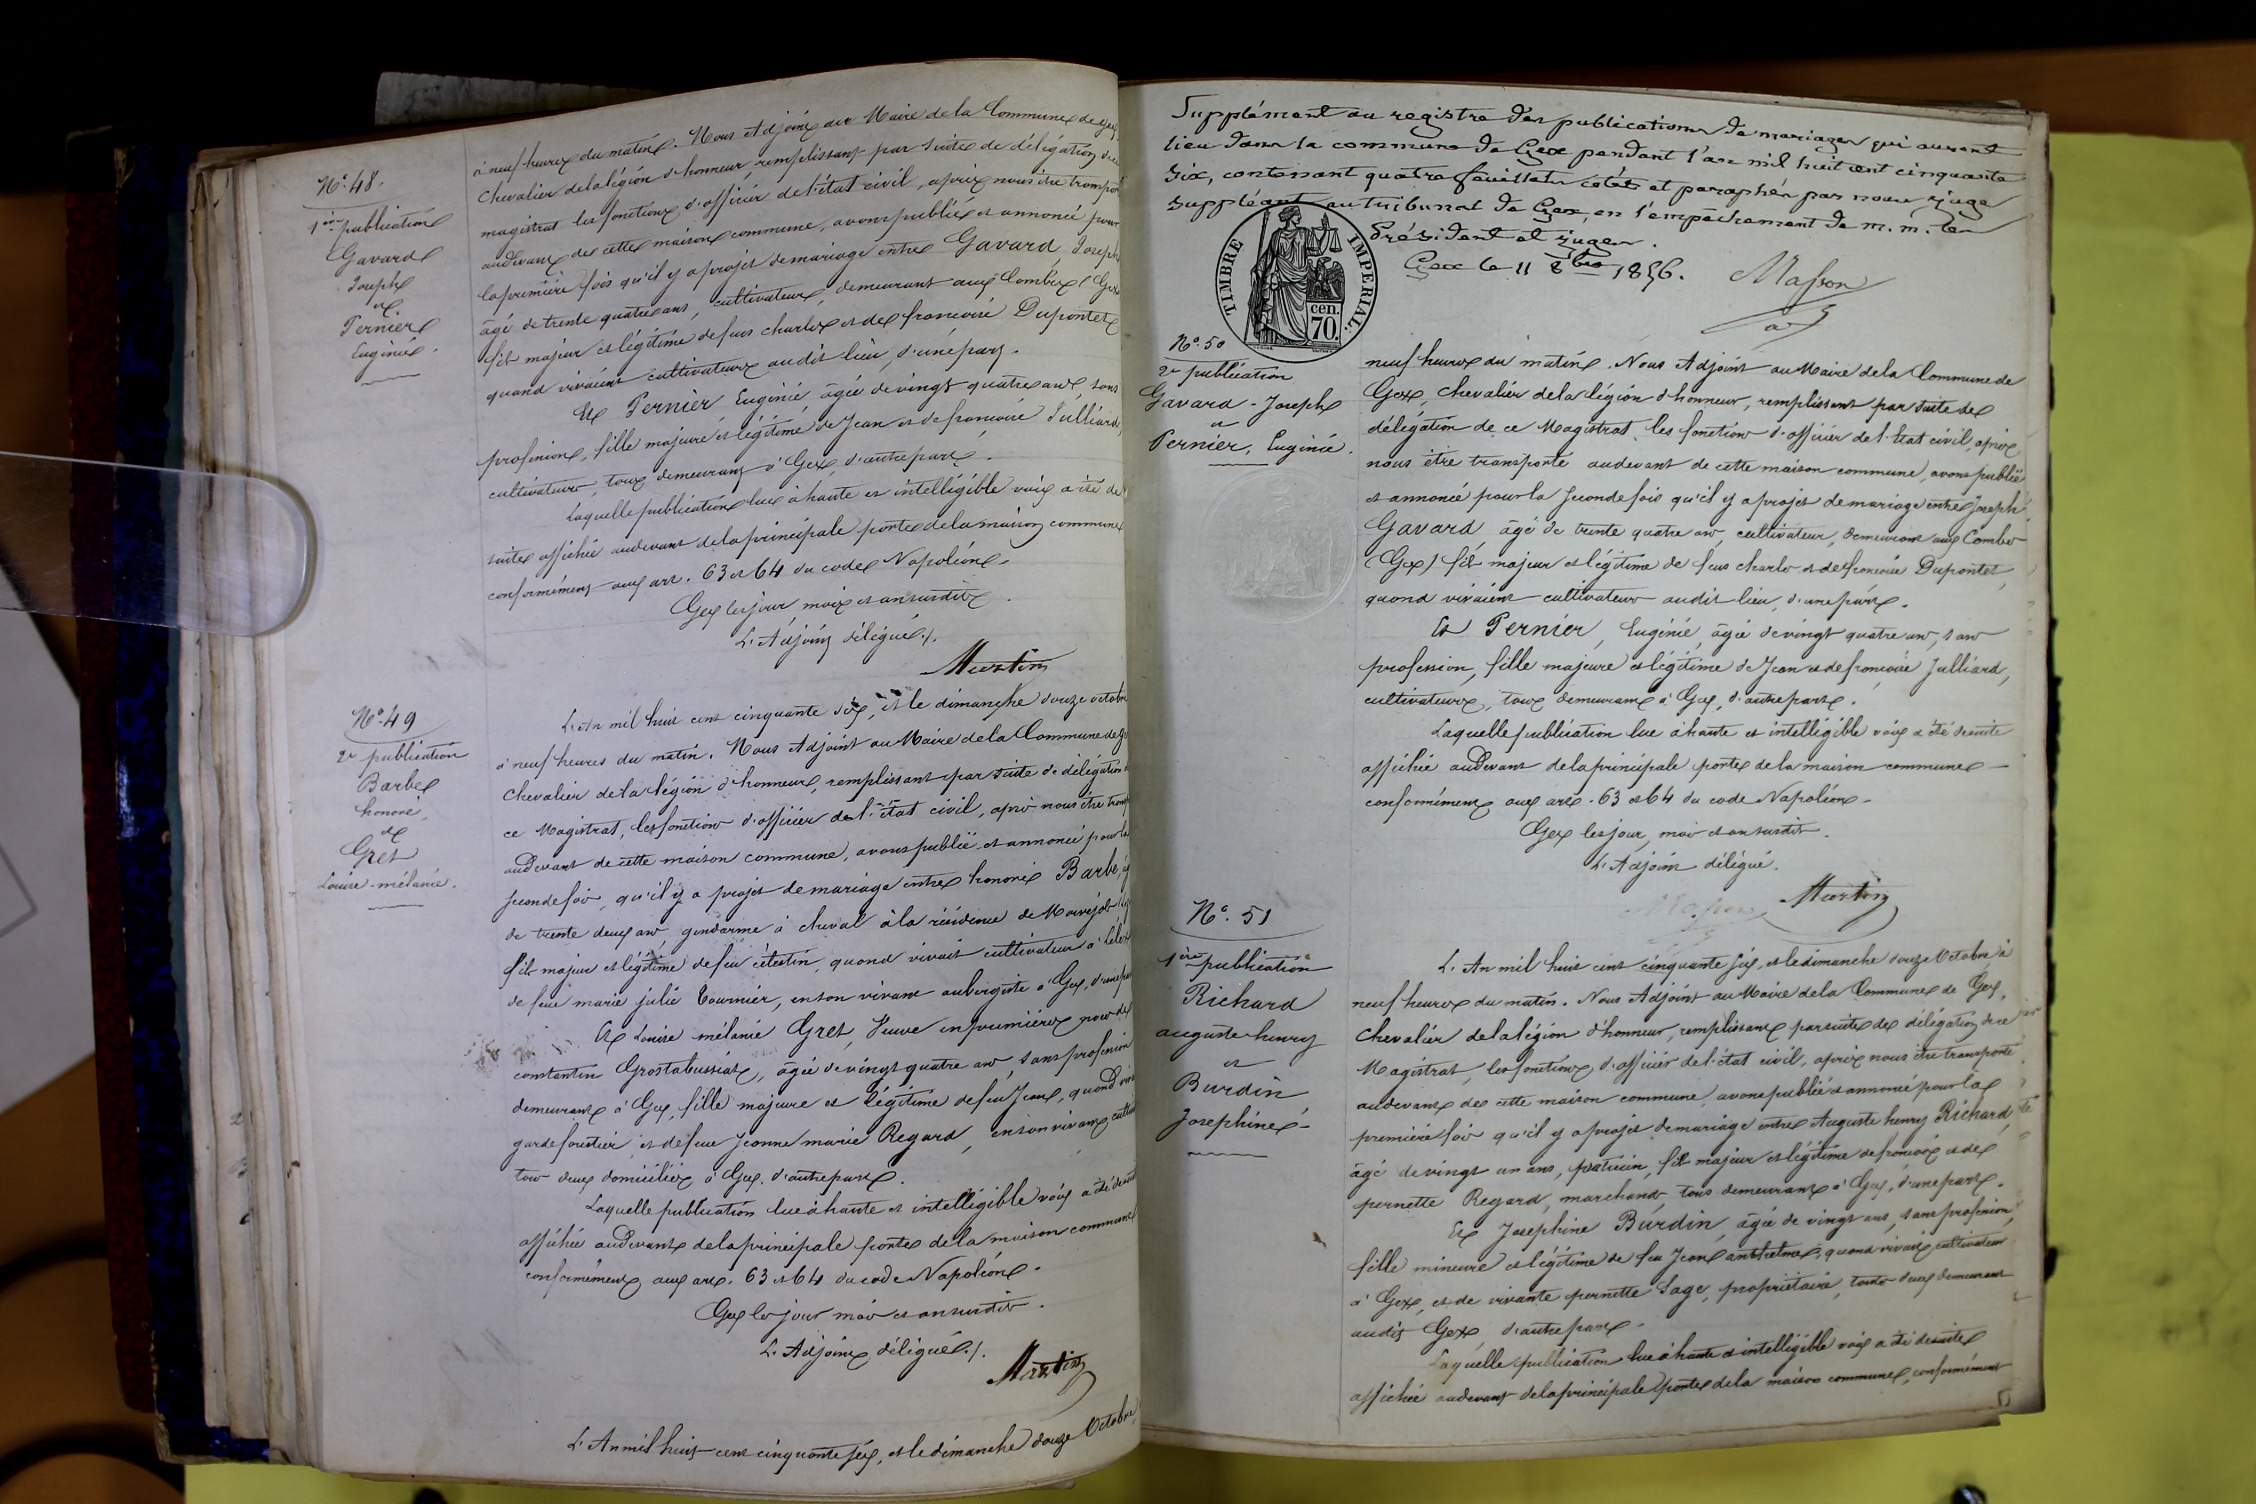 à neuf heures du matin. Nous Adjoint au Maire de la Commune de Gex
N.° 48.
1ère publication
Gavard
Joseph
et
Pernier
Eugénie.
Chevalier de la légion d'honneur, remplissant par suite de délégation de ce
magistrat les fonctions d'officier de l'état civil, après nous être transporté
audevant de cette maison commune, avons publié et annoncé pour
la première fois qu'il y a projet de mariage entre Gavard, Joseph
âgé de trente quatre ans, cultivateur, demeurant aux Combes (Gex
fils majeur et légitime de feus charles et de francoise Dupontet
quand vivaient cultivateurs audit lieu, d'une part.
Et Pernier, Eugénie, âgée de vingt quatre ans, sans
profession, fille majeure et légitime de Jean et de francoise Julliard,
cultivateurs, tous demeurant à Gex, d'autre part.
Laquelle publication lue à haute et intelligible voix a été de
suite affichée audevant de la principale porte de la maison commune
conformément aux art. 63 et 64 du code Napoléon.
Gex les jour, mois et an susdits.
L'Adjoint délégué./.
Martin
N.° 49
2e publication
Barbe
honoré,
et
Gret
Louise-mélanie.
L'An mil huit cent cinquante six, et le dimanche douze octobre
à neuf heures du matin. Nous Adjoint au Maire de la Commune de
Chevalier de la légion d'honneur, remplissant par suite de délégation
ce Magistrat, les fonctions d'officier de l'état civil, après nous être
audevant de cette maison commune, avons publié et annoncé pour la
seconde fois, qu'il y a projet de mariage entre honoré Barbe,
de trente deux ans, gendarme à cheval à la résidence de
fils majeur et légitime de feu célestin, quand vivait cultivateur à Lélex
de feue marie julie Tournier, en son vivant aubergiste à Gex, d'une part
Et Louise mélanie Gret, Veuve en premières noces de
constantin Grostabussiat, âgée de vingt quatre ans, sans profession
demeurant à Gex, fille majeure et légitime de feu Jean, quand
garde forestier, et de feue Jeanne marie Regard, en son vivant
tous deux domiciliés à Gex, d'autre part.
Laquelle publication lue à haute et intelligible voix a été de suite
affichée audevant de la principale porte de la maison commune
conformément aux art. 63 et 64 du code Napoléon.
Gex les jour mois et an susdits.
L'Adjoint délégué./.
Martin
L'An mil huit cent cinquante six, et le dimanche douze Octobre
Supplément au registre des publications de mariages qui auront
lieu dans la commune de Gex pendant l'an mil huit cent cinquante
six, contenant quatre feuillets cotés et paraphés par nous, juge
suppléant au tribunal de Gex, en l'empêchement de m.m. les
Président et juges.
Gex le 11 8bre 1856.
Masson
TIMBRE IMPERIAL.
70 cen.
N.° 50
2e publication
Gavard - Joseph
et
Pernier, Eugénie.
neuf heures du matin. Nous Adjoint au Maire de la Commune de
Gex, Chevalier de la légion d'honneur, remplissant par suite de
délégation de ce Magistrat, les fonctions d'officier de l'état civil, après
nous être transporté audevant de cette maison commune, avons publié
et annoncé pour la seconde fois qu'il y a projet de mariage entre Joseph
Gavard âgé de trente quatre ans, cultivateur, demeurant aux Combes
(Gex) fils majeur et légitime de feus charles et de francoise Dupontet,
quand vivaient cultivateurs audit lieu, d'une part.
Et Pernier, Eugénie, âgée de vingt quatre ans, sans
profession, fille majeure et légitime de Jean et de francoise Julliard,
cultivateurs, tous demeurant à Gex, d'autre part.
Laquelle publication lue à haute et intelligible voix a été de suite
affichée audevant de la principale porte de la maison commune
conformément aux art. 63 et 64 du code Napoléon.
Gex les jour, mois et an susdits.
L'Adjoint délégué.
Martin
N.° 51
1ère publication
Richard
auguste henry
et
Burdin
Josephine
L'An mil huit cent cinquante six, et le dimanche douze Octobre à
neuf heures du matin. Nous Adjoint au Maire de la Commune de Gex,
Chevalier de la légion d'honneur, remplissant par suite de délégation de ce
Magistrat, les fonctions d'officier de l'état civil, après nous être transporté
audevant de cette maison commune, avons publié et annoncé pour la
première fois qu'il y a projet de mariage entre Auguste henry Richard,
âgé de vingt un ans, praticien, fils majeur et légitime de francois et de
pernette Regard, marchand, tous demeurant à Gex, d'une part.
Et Josephine Burdin, âgée de vingt ans, sans profession,
fille mineure et légitime de feu Jean anthelme, quand vivait cultivateur
à Gex, et de vivante pernette Sage, propriétaire, toutes deux demeurant
audit Gex, d'autre part.
Laquelle publication lue à haute et intelligible voix a été de suite
affichée audevant de la principale porte de la maison commune, conformément